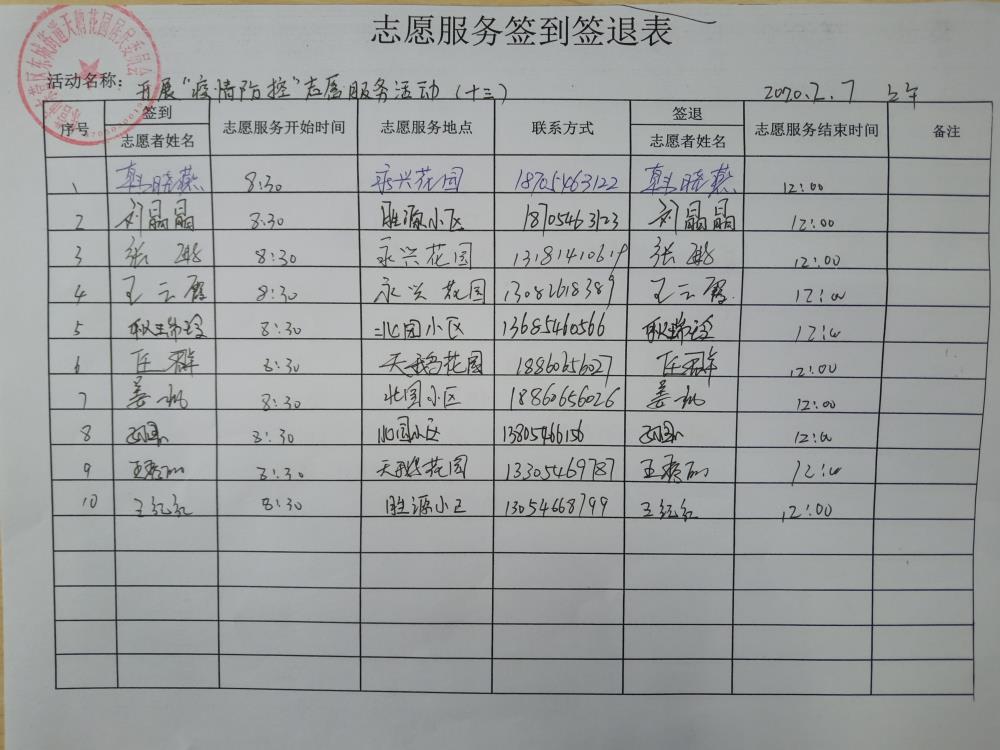 志愿服务签到签退表
活动名称： 开展“疫情防控”志愿服务活动（十三） 2020.2.7 上午
序号 签到 志愿者姓名 志愿服务开始时间 志愿服务地点 联系方式 签退 志愿者姓名 志愿服务结束时间 备注
1 韩晓燕 8:30 永兴花园 18705463122 韩晓燕 12:00
2 刘晶晶 8:30 胜源小区 18705463123 刘晶晶 12:00
3 张 8:30 永兴花园 13181410619 张 12:00
4 王云霞 8:30 永兴花园 13082618389 王云霞 12:00
5 8:30 北园小区 13685460566 12:00
6 任群 8:30 天鹅花园 18860656027 任群 12:00
7 姜 8:30 北园小区 18860656026 姜 12:00
8 8:30 北园小区 13805466156 12:00
9 王秀丽 8:30 天鹅花园 13305469787 王秀丽 12:00
10 王红红 8:30 胜源小区 13054668799 王红红 12:00